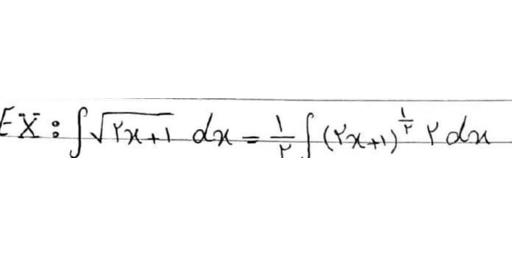 EX: ∫√(۲x+۱) dx = ۱/۲ ∫(۲x+۱)^(۱/۲) ۲ dx